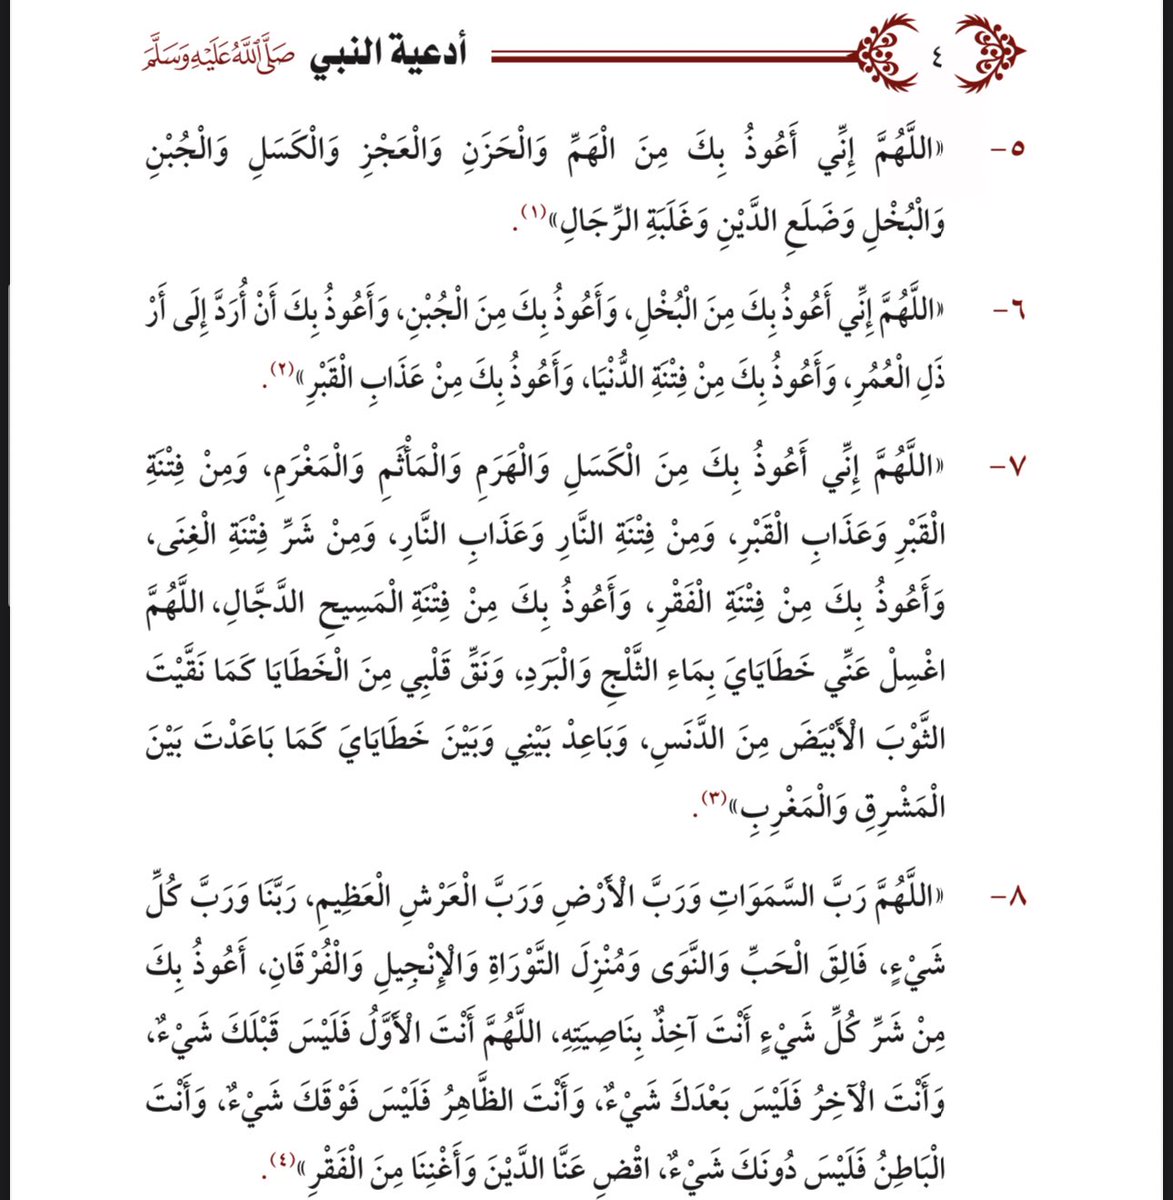 ٤ أدعية النبي صَلَّى اللَّهُ عَلَيْهِ وَسَلَّمَ
٥- «اللَّهُمَّ إِنِّي أَعُوذُ بِكَ مِنَ الْهَمِّ وَالْحَزَنِ وَالْعَجْزِ وَالْكَسَلِ وَالْجُبْنِ
وَالْبُخْلِ وَضَلَعِ الدَّيْنِ وَغَلَبَةِ الرِّجَالِ»(١).
٦- «اللَّهُمَّ إِنِّي أَعُوذُ بِكَ مِنَ الْبُخْلِ، وَأَعُوذُ بِكَ مِنَ الْجُبْنِ، وَأَعُوذُ بِكَ أَنْ أُرَدَّ إِلَى أَرْ
ذَلِ الْعُمُرِ، وَأَعُوذُ بِكَ مِنْ فِتْنَةِ الدُّنْيَا، وَأَعُوذُ بِكَ مِنْ عَذَابِ الْقَبْرِ»(٢).
٧- «اللَّهُمَّ إِنِّي أَعُوذُ بِكَ مِنَ الْكَسَلِ وَالْهَرَمِ وَالْمَأْثَمِ وَالْمَغْرَمِ، وَمِنْ فِتْنَةِ
الْقَبْرِ وَعَذَابِ الْقَبْرِ، وَمِنْ فِتْنَةِ النَّارِ وَعَذَابِ النَّارِ، وَمِنْ شَرِّ فِتْنَةِ الْغِنَى،
وَأَعُوذُ بِكَ مِنْ فِتْنَةِ الْفَقْرِ، وَأَعُوذُ بِكَ مِنْ فِتْنَةِ الْمَسِيحِ الدَّجَّالِ، اللَّهُمَّ
اغْسِلْ عَنِّي خَطَايَايَ بِمَاءِ الثَّلْجِ وَالْبَرَدِ، وَنَقِّ قَلْبِي مِنَ الْخَطَايَا كَمَا نَقَّيْتَ
الثَّوْبَ الْأَبْيَضَ مِنَ الدَّنَسِ، وَبَاعِدْ بَيْنِي وَبَيْنَ خَطَايَايَ كَمَا بَاعَدْتَ بَيْنَ
الْمَشْرِقِ وَالْمَغْرِبِ»(٣).
٨- «اللَّهُمَّ رَبَّ السَّمَوَاتِ وَرَبَّ الْأَرْضِ وَرَبَّ الْعَرْشِ الْعَظِيمِ، رَبَّنَا وَرَبَّ كُلِّ
شَيْءٍ، فَالِقَ الْحَبِّ وَالنَّوَى وَمُنْزِلَ التَّوْرَاةِ وَالْإِنْجِيلِ وَالْفُرْقَانِ، أَعُوذُ بِكَ
مِنْ شَرِّ كُلِّ شَيْءٍ أَنْتَ آخِذٌ بِنَاصِيَتِهِ، اللَّهُمَّ أَنْتَ الْأَوَّلُ فَلَيْسَ قَبْلَكَ شَيْءٌ،
وَأَنْتَ الْآخِرُ فَلَيْسَ بَعْدَكَ شَيْءٌ، وَأَنْتَ الظَّاهِرُ فَلَيْسَ فَوْقَكَ شَيْءٌ، وَأَنْتَ
الْبَاطِنُ فَلَيْسَ دُونَكَ شَيْءٌ، اقْضِ عَنَّا الدَّيْنَ وَأَغْنِنَا مِنَ الْفَقْرِ»(٤).